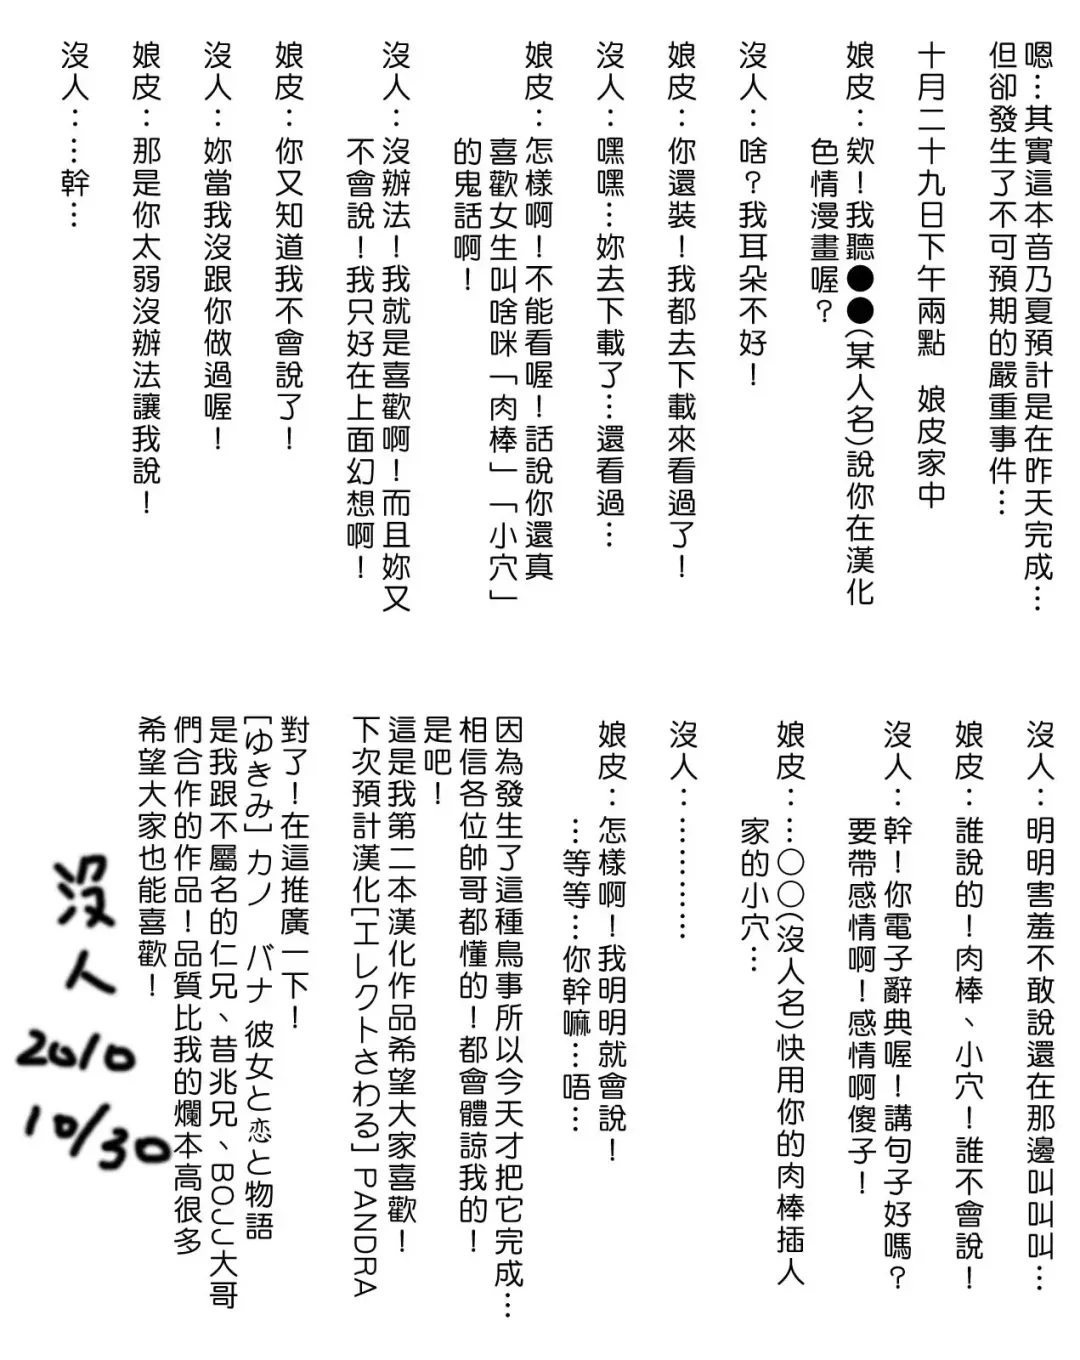 嗯…其實這本音乃夏預計是在昨天完成…
但卻發生了不可預期的嚴重事件…
十月二十九日下午兩點　娘皮家中
娘皮：欸！我聽●●(某人名)說你在漢化
色情漫畫喔？
沒人：啥？我耳朵不好！
娘皮：你還裝！我都去下載來看過了！
沒人：嘿嘿…妳去下載了…還看過…
娘皮：怎樣啊！不能看喔！話說你還真
喜歡女生叫啥咪「肉棒」「小穴」
的鬼話啊！
沒人：沒辦法！我就是喜歡啊！而且妳又
不會說！我只好在上面幻想啊！
娘皮：你又知道我不會說了！
沒人：妳當我沒跟你做過喔！
娘皮：那是你太弱沒辦法讓我說！
沒人：…幹…
沒人：明明害羞不敢說還在那邊叫叫叫…
娘皮：誰說的！肉棒、小穴！誰不會說！
沒人：幹！你電子辭典喔！講句子好嗎？
要帶感情啊！感情啊傻子！
娘皮：…○○(沒人名)快用你的肉棒插人
家的小穴…
沒人：…………
娘皮：怎樣啊！我明明就會說！
…等等…你幹嘛…唔…
因為發生了這種鳥事所以今天才把它完成…
相信各位帥哥都懂的！都會體諒我的！
是吧！
這是我第二本漢化作品希望大家喜歡！
下次預計漢化[エレクトさわる] PANDRA
對了！在這推廣一下！
[ゆきみ] カノ　バナ 彼女と恋と物語
是我跟不屬名的仁兄、昔兆兄、BOJJ大哥
們合作的作品！品質比我的爛本高很多
希望大家也能喜歡！
沒人
2010
10/30